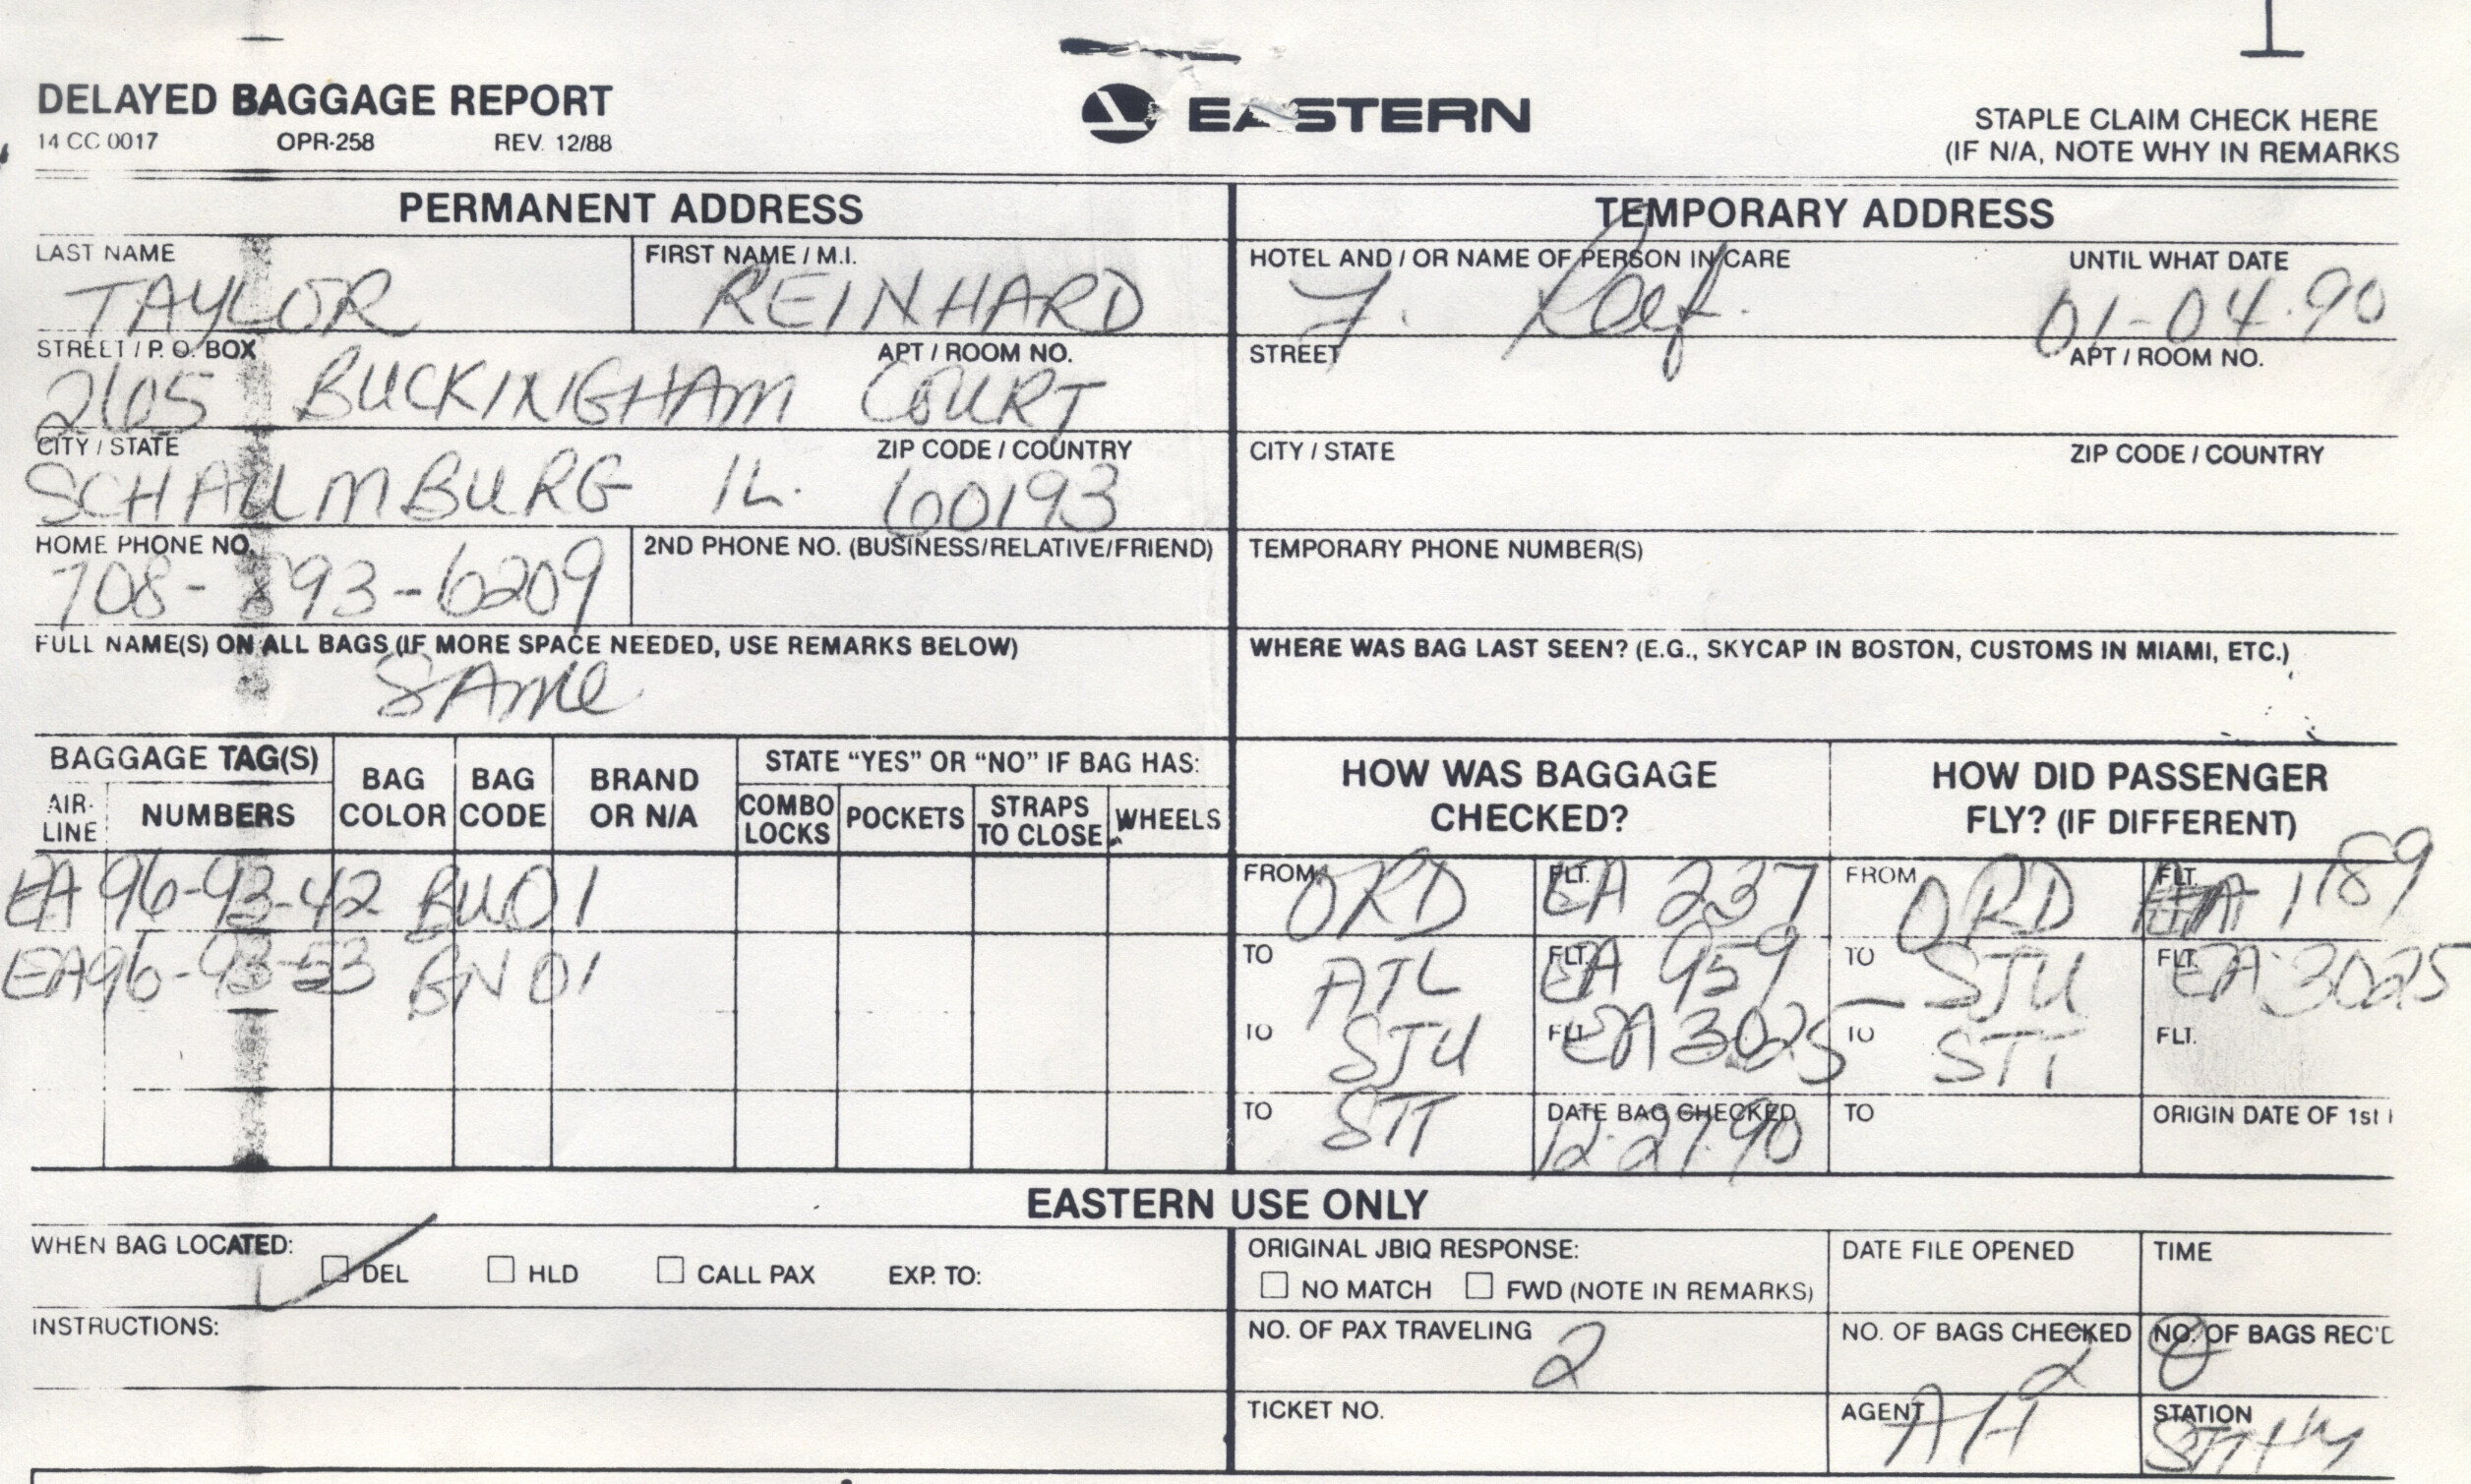 DELAYED BAGGAGE REPORT
14 CC 0017 OPR-258 REV. 12/88
EASTERN
STAPLE CLAIM CHECK HERE
(IF N/A, NOTE WHY IN REMARKS
PERMANENT ADDRESS
LAST NAME FIRST NAME / M.I.
TAYLOR REINHARD
STREET / P. O. BOX APT / ROOM NO.
2605 BUCKINGHAM COURT
CITY / STATE ZIP CODE / COUNTRY
SCHAUMBURG IL. 60193
HOME PHONE NO. 2ND PHONE NO. (BUSINESS/RELATIVE/FRIEND)
708-893-6209
FULL NAME(S) ON ALL BAGS (IF MORE SPACE NEEDED, USE REMARKS BELOW)
SAME
TEMPORARY ADDRESS
HOTEL AND / OR NAME OF PERSON IN CARE UNTIL WHAT DATE
7. Reef. 01-04.90
STREET APT / ROOM NO.
CITY / STATE ZIP CODE / COUNTRY
TEMPORARY PHONE NUMBER(S)
WHERE WAS BAG LAST SEEN? (E.G., SKYCAP IN BOSTON, CUSTOMS IN MIAMI, ETC.)
BAGGAGE TAG(S) BAG COLOR BAG CODE BRAND OR N/A STATE "YES" OR "NO" IF BAG HAS:
AIR-LINE NUMBERS COMBO LOCKS POCKETS STRAPS TO CLOSE WHEELS
EA 96-93-42 BU 01
EA 96-93-53 BN 01
HOW WAS BAGGAGE CHECKED? HOW DID PASSENGER FLY? (IF DIFFERENT)
FROM ORD FLT. EA 237 FROM ORD FLT. 1189
TO ATL FLT. EA 959 TO SJU FLT. EA 3025
TO SJU FLT. EA 3025 TO STT FLT.
TO STT DATE BAG CHECKED 12.27.90 TO ORIGIN DATE OF 1st
EASTERN USE ONLY
WHEN BAG LOCATED: DEL HLD CALL PAX EXP. TO:
INSTRUCTIONS:
ORIGINAL JBIQ RESPONSE: DATE FILE OPENED TIME
NO MATCH FWD (NOTE IN REMARKS)
NO. OF PAX TRAVELING 2 NO. OF BAGS CHECKED 2 NO. OF BAGS REC'D 0
TICKET NO. AGENT AH STATION